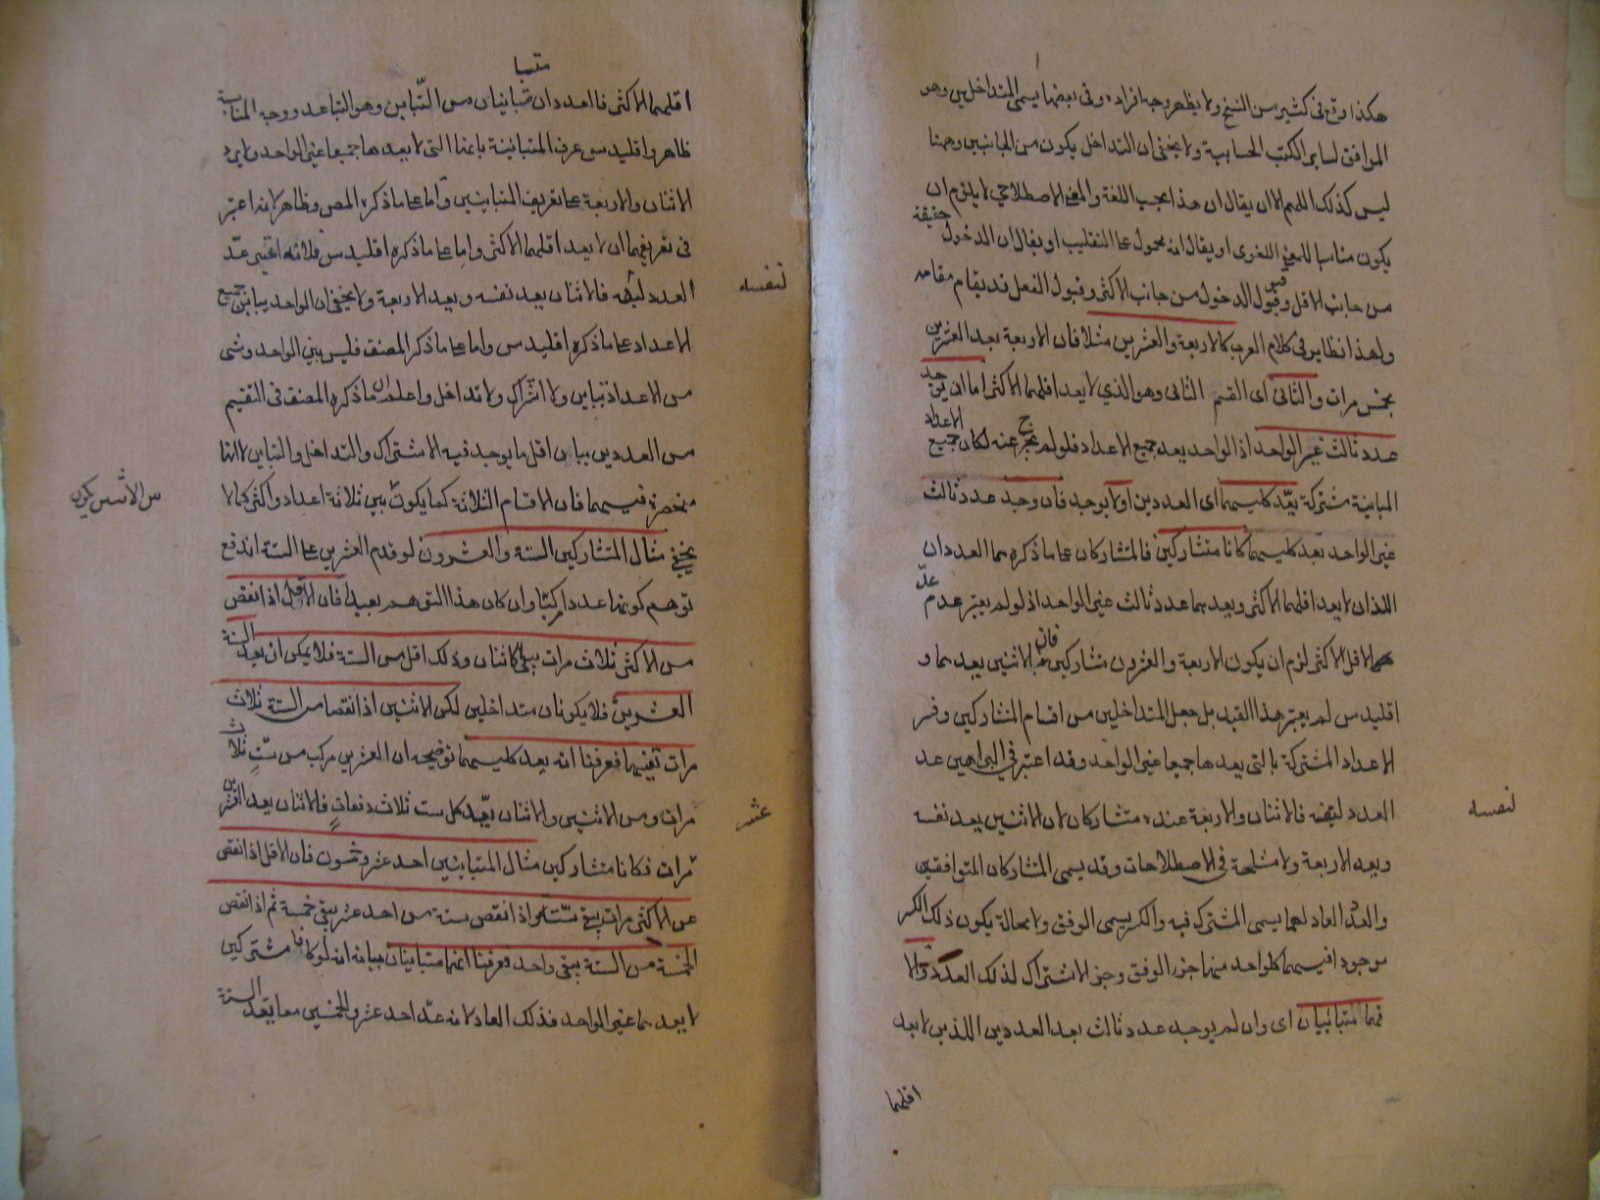 هكذا وقع فى كثير من النسخ ولا يظهر وجه افراده وفى بعضها يسمى المتداخلين وهو
الموافق لساير الكتب الحسابية ولا يخفى ان التداخل يكون من الجانبين وههنا
ليس كذلك اللهم الا ان يقال ان هذا بحسب اللغة والمعنى الاصطلاحي لا يلزم ان
يكون مناسبا للمعنى اللغوى او يقال انه محمول على التغليب او يقال ان الدخول حقيقة
من جانب الاقل وقبول الدخول من جانب الاكثر وقبول الفعل قد يقام مقامه
ولهذا نظاير فى كلام العرب كالاربعة والعشرين مثلا فان الاربعة يعد العشرين
بخمس مرات والثانى اى القسم الثانى وهو الذي لا يعد اقلهما الاكثر اما ان يوجد
عدد ثالث غير الواحد اذ الواحد يعد جميع الاعداد فلو لم يخرج عنه لكان جميع الاعداد
المباينة مشتركة يعّد كليهما اى العددين او لا يوجد فان وجد عدد ثالث
غير الواحد يعد كليهما كانا متشاركين فالمتشاركان على ما ذكره هما العددان
اللذان لا يعد اقلهما الاكثر ويعد هما عدد ثالث غير الواحد اذ لو لم يعتبر عدم عدّ
الاقل الاكثر لزم ان يكون الاربعة والعشرون متشاركين فان الاثنين يعد هما و
اقليدس لم يعتبر هذا القيد بل جعل المتداخلين من اقسام المتشاركين وفسر
الاعداد المشتركة بالتى يعد ها جميعا غير الواحد وقد اعتبر فى البراهين عد
العدد لنفسه فالاثنان والاربعة عنده متشاركان لان الاثنين يعد نفسه
لنفسه
ويعد الاربعة ولا مشاحة فى الاصطلاحات وقد يسمى المتشاركان المتوافقين
والعدد العاد لهما يسمى المشترك فيه والكسر يسمى الوفق ولا محالة يكون ذلك الكسر
موجودا فيهما كلواحد منهما جزء الوفق وجزء الاشتراك لذلك العدد والا
فهما المتباينان اى وان لم يوجد عدد ثالث يعد العددين اللذين لا يعد
اقلهما
اقلهما الاكثر فالعددان متباينان من التّباين وهو التباعد ووجه المناسبة
متبا
ظاهر واقليدس عرف المتباينة بانها التى لا يعد ها جميعا غير الواحد
الاثنان والاربعة على تعريف المتباينين واما على ما ذكره المص وظاهر لانه اعتبر
فى تعريفهما ان لا يعد اقلهما الاكثر واما على ما ذكره اقليدس فلانه اعتبر عدّ
العدد لنفسه فالاثنان يعد نفسه ويعد الاربعة ولا يخفى ان الواحد يباين جميع
لنفسه
الاعداد على ما ذكره اقليدس واما على ما ذكر المصنف فليس بين الواحد وشى
من الاعداد تباين ولا اشتراك ولا تداخل واعلم ان ما ذكره المصنف فى التقسيم
من العددين بيان اقل ما يوجد فيه الاشتراك والتداخل والتباين لا انها
منحصرة فيهما فان الاقسام الثلاثة كما يكون بين ثلاثة اعداد واكثر كما لا
من الاثنين يكون
يخفى مثال المتشاركين الستة والعشرون لو قدم العشرين على الستة اندفع
توهم كونها عددا مركبًا وان كان هذا التوهم بعيدا فان الاقل اذا نقص
من الاكثر ثلاث مرات يبقى اثنان وذلك اقل من الستة فلا يمكن ان يعد الستة
العشرين فلا يكونان متداخلين لكن الاثنين اذا نقصا من الستة ثلاث
مرات تفنيها فعرفنا انه يعد كليهما توضيحه ان العشرين مركب من ستٍ ثلاث
مرات ومن الاثنين والاثنان يعّد كل ست ثلاث دفعات فالاثنان يعد العشرين
عشر
مرات فكانا متشاركين مثال المتباينين احد عشر وخمسون فان الاقل اذا نقص
عن الاكثر مرات يبقى ستّة واذا نقص ستة من احد عشر يبقى خمسة ثم اذا نقص
الخمسة من الستة يبقى واحد فعرفنا انهما متباينان بيانه انه لو كانا مشتركين
لا يعد هما غير الواحد فذلك العاد لانه عدّ احد عشر والخمسين معا يعّد الستة